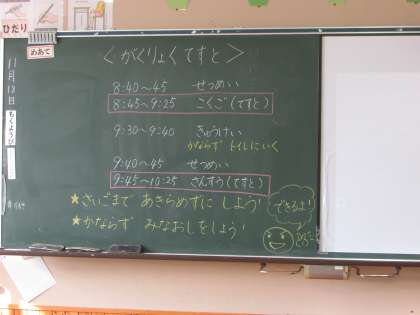 ひだり
めあて
＜がくりょくてすと＞
11月
日
もくようび
8:40～45 せつめい
8:45～9:25 こくご(てすと)
9:30～9:40 きゅうけい
かならず トイレにいく
9:40～45 せつめい
9:45～10:25 さんすう(てすと)
★さいごまで あきらめずに しよう!
★かならず みなおしをしよう!
できるよ!